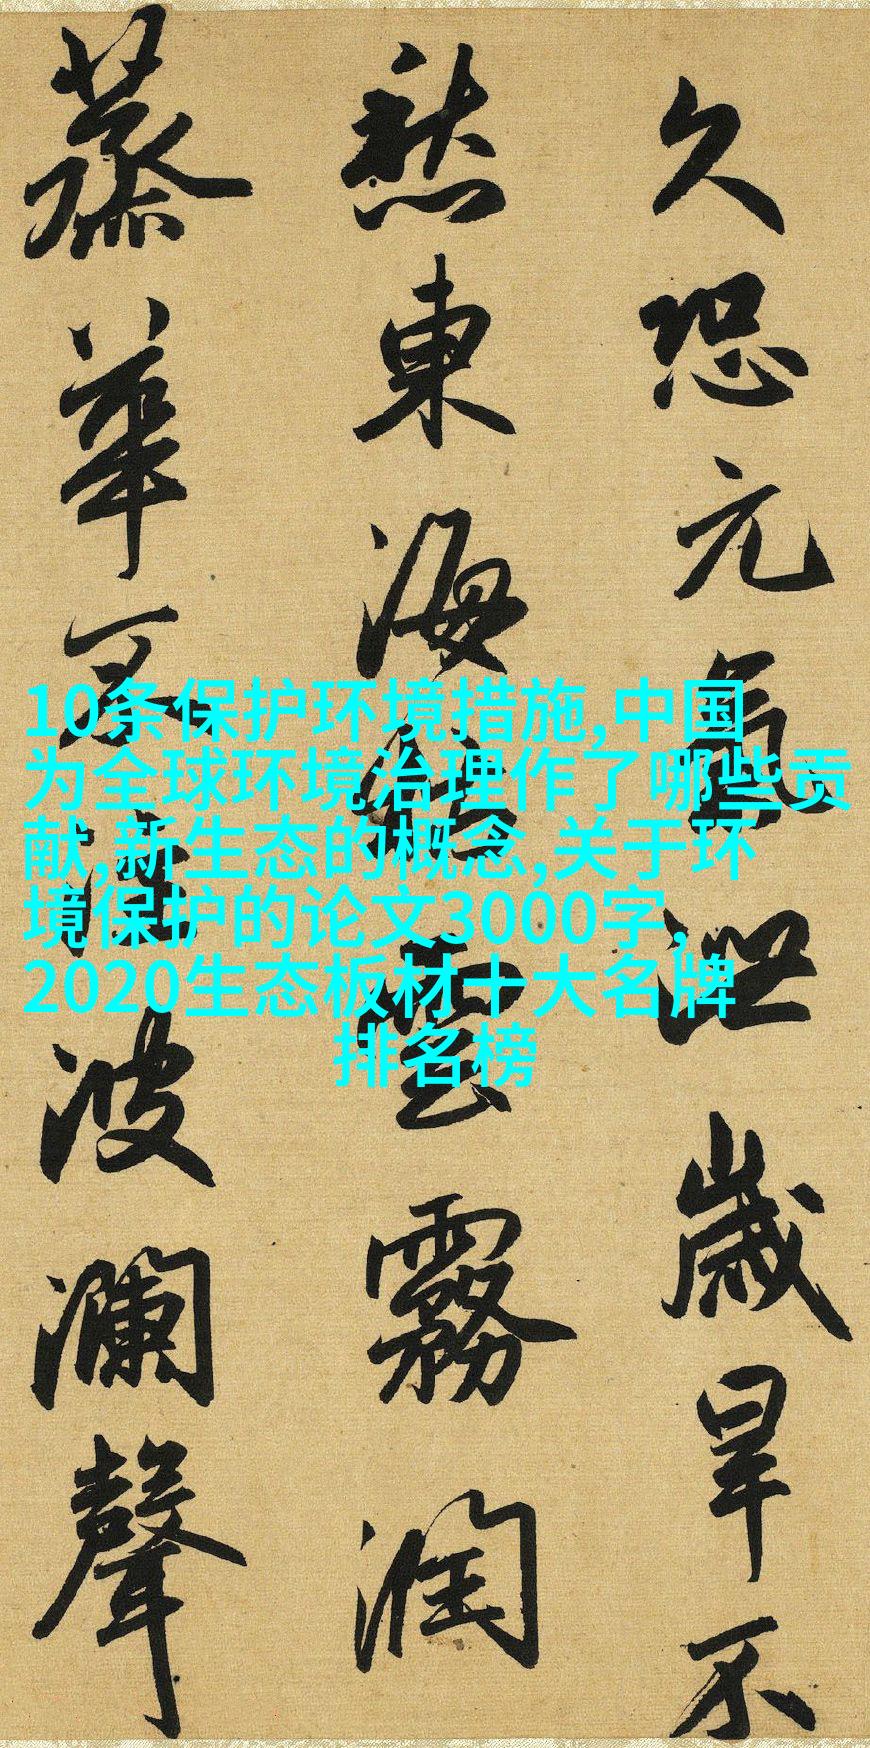 久恐元氣泄歲旱不
愁東海枯雲霧潤
蒸華不注波瀾聲
10条保护环境措施,中国
为全球环境治理作了哪些贡
献,新生态的概念,关于环
境保护的论文3000字,
2020生态板材十大名牌
排名榜